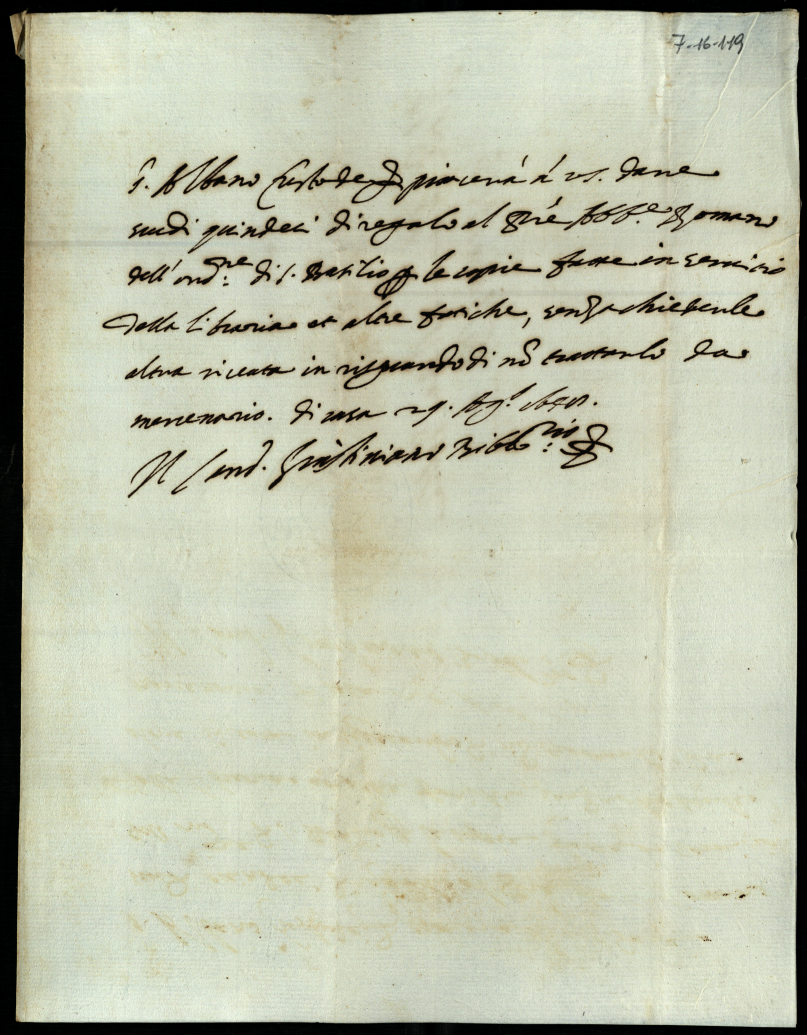 7-16-119
S. Albano Custode piacerà à VS. dare
scudi quindeci di regalo al Pré Abb.e Romano
dell'ord.ne di S. Basilio p le copie fatte in servitio
della libraria et altre fatiche, senza chiederle
altra riceuta in risguardo di nõ trattarlo da
mercenario. di casa 29.
Il Card. Giustiniano Bibb.rio